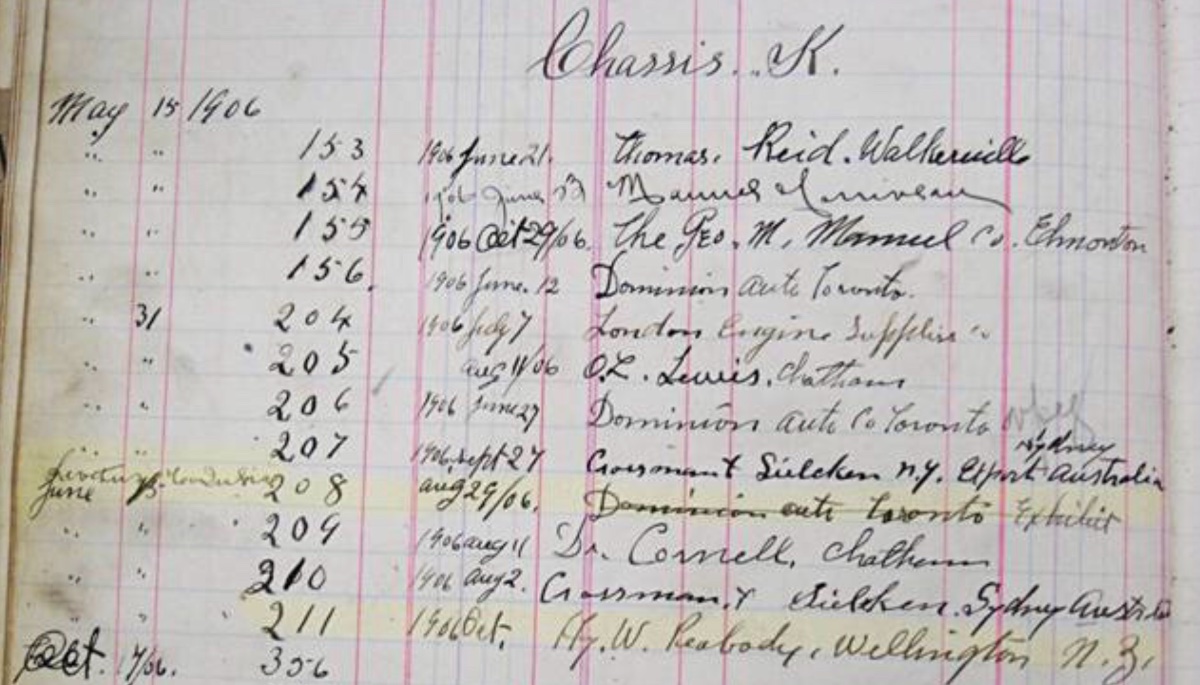 Chassis. K.
May 15 1906
" " 153 1906 June 21. Thomas. Reid. Walkerville
" " 154 1906 June Manuel
" " 155 1906 Oct 29/06. The Geo. M. Manuel Co. Edmonton
" " 156. 1906 June. 12 Dominion Auto Toronto.
" 31 204 1906 July 7 London Engine Supplies Co
" " 205 Aug 11/06 O.L. Lewis. Chatham
" " 206 1906 June 27 Dominion Auto Co Toronto
Sydney
" " 207 1906 Sept 27 Crossman & Sielcken N.Y. Export Australia
June 15 208 Aug 29/06. Dominion Auto Toronto Exhibit
" " 209 1906 Aug 11 Dr. Cornell, Chatham
" " 210 1906 Aug 2. Crossman & Sielcken. Sydney Australia
" " 211 1906 Oct. Hy. W. Peabody, Wellington N.Z.
Oct. 17/06. 356